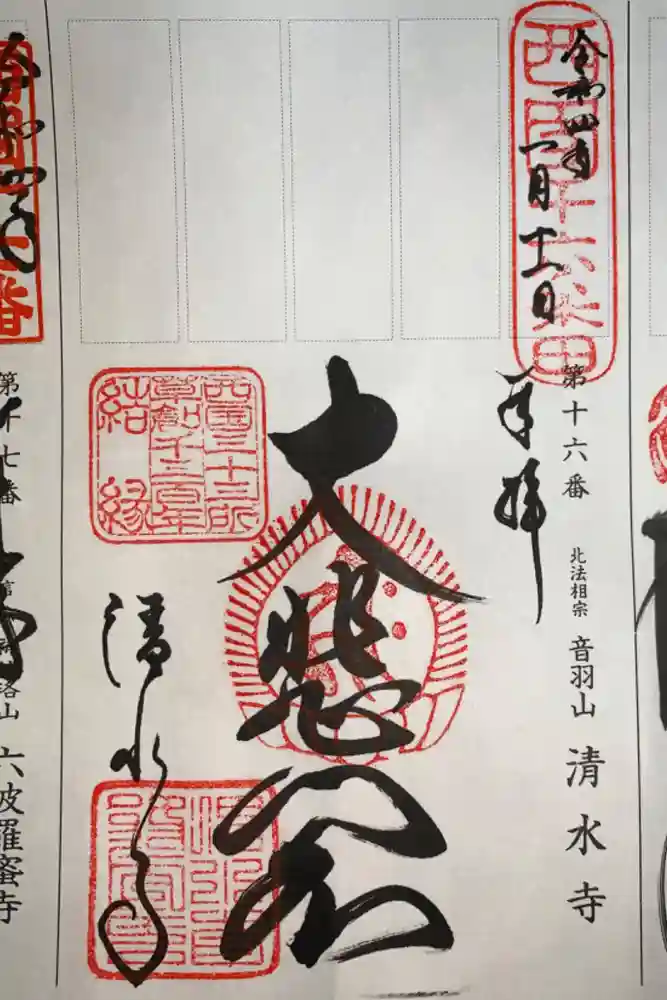 令和四年
一月十一日
西国十六番
第十六番
北法相宗
音羽山
清水寺
奉拝
大悲閣
西国三十三所
草創千三百年
結縁
清水寺
令和四年
第十七番
六波羅蜜寺